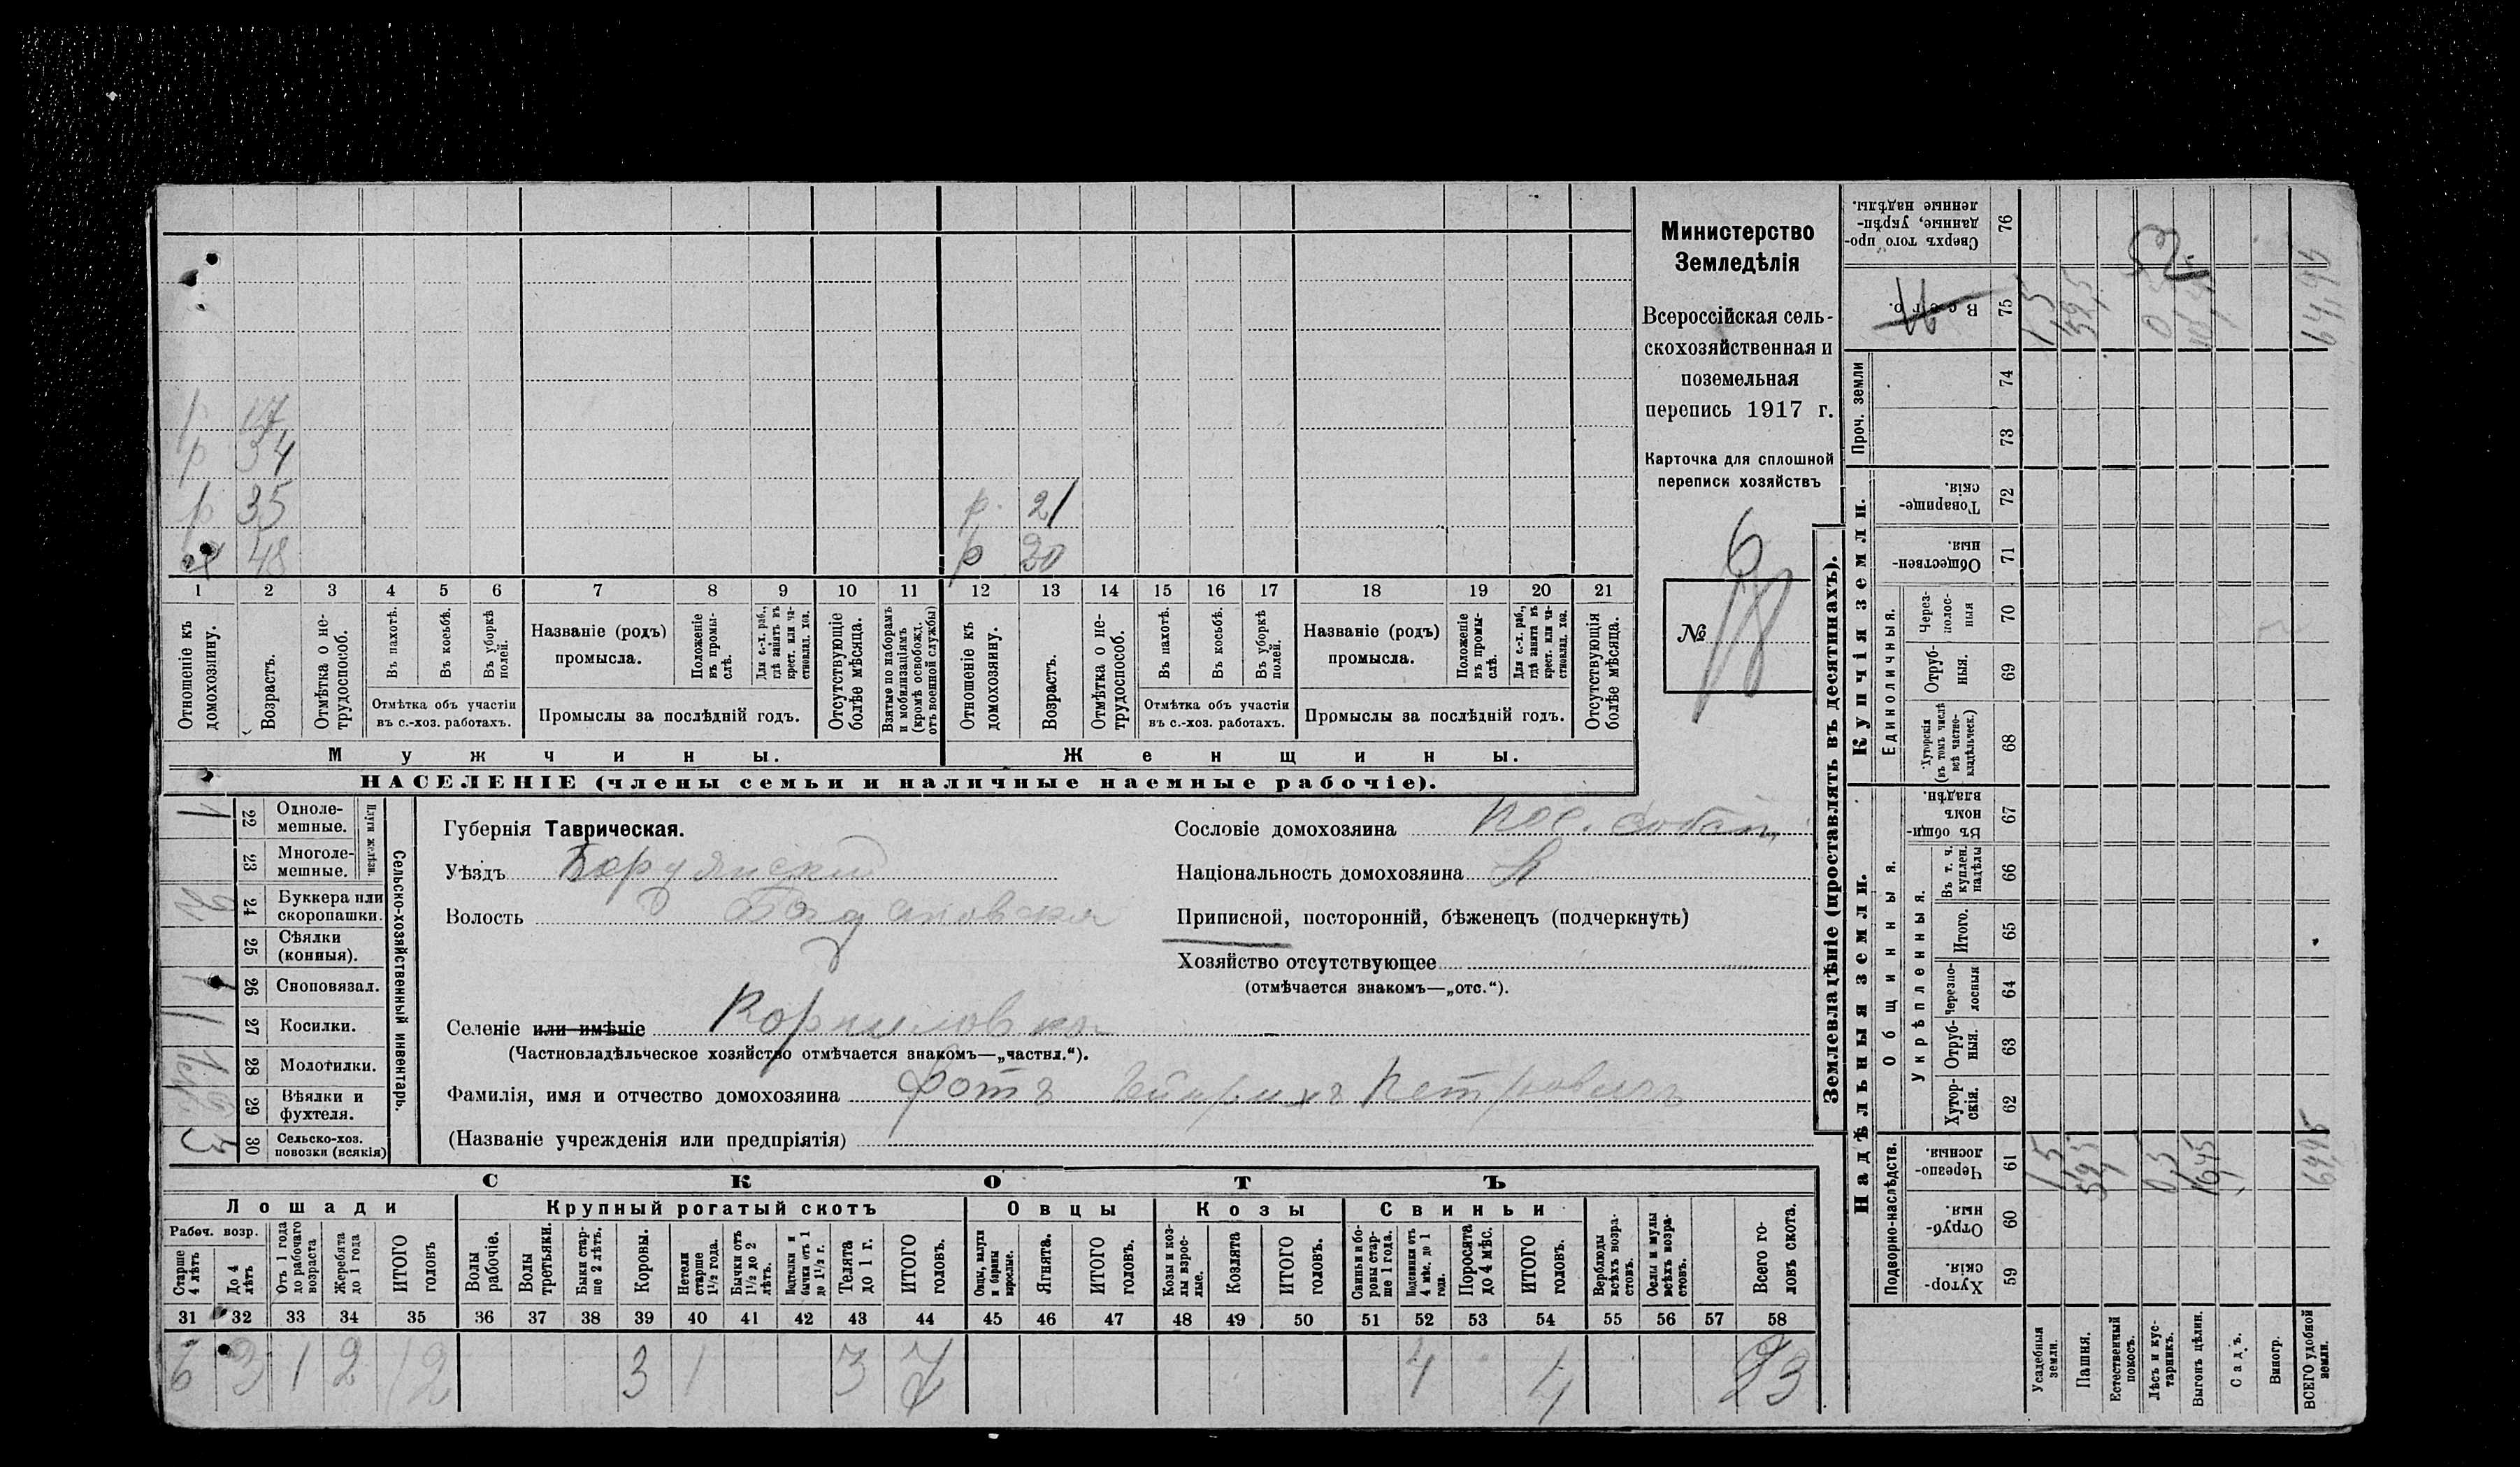 р 17
р 34
р 35 р. 21
х 48 р 20
1 2 3 4 5 6 7 8 9 10 11 12 13 14 15 16 17 18 19 20 21
Отношеніе къ домохозяину.
Возрастъ.
Отмѣтка о не-
трудоспособ.
Въ пахотѣ.
Въ косьбѣ.
Въ уборкѣ полей.
Отмѣтка объ участіи
въ с.-хоз. работахъ.
Названіе (родъ)
промысла.
Положеніе въ промы-
слѣ.
Для с.-х. раб., гдѣ занятъ въ крест. или ча-
стновлад. хоз.
Промыслы за послѣдній годъ.
Отсутствующіе болѣе мѣсяца.
Взятые по наборамъ и мобилизаціямъ (кромѣ освобожд. отъ военной службы)
Отношеніе къ домохозяину.
Возрастъ.
Отмѣтка о не-
трудоспособ.
Въ пахотѣ.
Въ косьбѣ.
Въ уборкѣ полей.
Отмѣтка объ участіи
въ с.-хоз. работахъ.
Названіе (родъ)
промысла.
Положеніе въ промы-
слѣ.
Для с.-х. раб., гдѣ занята въ крест. или ча-
стновлад. хоз.
Промыслы за послѣдній годъ.
Отсутствующія болѣе мѣсяца.
Мужчины.
Женщины.
НАСЕЛЕНІЕ (члены семьи и наличные наемные рабочіе).
Министерство
Земледѣлія
Всероссійская сель-
скохозяйственная и
поземельная
перепись 1917 г.
Карточка для сплошной
переписи хозяйствъ
6
№ 18
Сельско-хозяйственный инвентарь.
Плуги желѣзн.
1 22 Одноле-
мешные.
23 Многоле-
мешные.
24 Буккера или
скоропашки.
25 Сѣялки
(конныя).
1 26 Сноповязал.
1 27 Косилки.
28 Молотилки.
29 Вѣялки и
фухтеля.
3 30 Сельско-хоз.
повозки (всякія)
Губернія Таврическая.
Уѣздъ Бердянскій
Волость Богдановская
Селеніе или имѣніе Корниловка
(Частновладѣльческое хозяйство отмѣчается знакомъ—„частвл.“).
Фамилія, имя и отчество домохозяина Фотъ Гейнрихъ Петровичъ
(Названіе учрежденія или предпріятія)
Сословіе домохозяина пос. собств.
Національность домохозяина
Приписной, посторонній, бѣженецъ (подчеркнуть)
Хозяйство отсутствующее
(отмѣчается знакомъ—„отс.“).
СКОТЪ
Лошади
Крупный рогатый скотъ
Овцы
Козы
Свиньи
Рабоч. возр.
Старше 4 лѣтъ
До 4 лѣтъ
Отъ 1 года до рабочаго возраста
Жеребята до 1 года
ИТОГО головъ
Волы рабочіе.
Волы третьяки.
Быки стар-
ше 2 лѣтъ.
Коровы.
Нетели старше 1½ года.
Бычки отъ 1½ до 2 лѣтъ.
Подтелки и бычки отъ 1 до 1½ г.
Телята до 1 г.
ИТОГО головъ.
Овцы, валухи и бараны взрослые.
Ягнята.
ИТОГО головъ.
Козы и коз-
лы взрос-
лые.
Козлята
ИТОГО головъ.
Свиньи и бо-
ровы стар-
ше 1 года.
Подсвинки отъ 4 мѣс. до 1 года.
Поросята до 4 мѣс.
ИТОГО головъ.
Верблюды всѣхъ возра-
стовъ.
Ослы и мулы всѣхъ возра-
стовъ.
Всего го-
ловъ скота.
31 32 33 34 35 36 37 38 39 40 41 42 43 44 45 46 47 48 49 50 51 52 53 54 55 56 57 58
6 3 1 2 12 3 1 3 7 4 4 23
Землевладѣніе (проставлять въ десятинахъ).
Сверхъ того про-
данные, укрѣп-
ленные надѣлы.
76
Всего.
75
1,5
59,5
0,5
64,95
Проч. земли
74
73
Купчія земли.
Товарище-
скія.
72
Обществен-
ныя.
71
Единоличныя.
Через-
полос-
ныя
70
Отруб-
ныя.
69
Хуторскія (въ томъ числѣ всѣ частно-
владѣльческ.)
68
Надѣльныя земли.
Общинныя.
Въ общин-
номъ
владѣн.
67
Укрѣпленныя.
Въ т. ч. куплен. надѣлы
66
Итого.
65
Черезпо-
лосныя
64
Отруб-
ныя.
63
Хутор-
скія.
62
Подворно-наслѣдств.
Черезпо-
лосныя.
61
1,5
59,5
0,5
64,95
Отруб-
ныя.
60
Хутор-
скія.
59
Усадебныя земли.
Пашня.
Естественный покосъ.
Лѣсъ и кус-
тарникъ.
Выгонъ цѣлин.
Садъ.
Виногр.
ВСЕГО удобной земли.